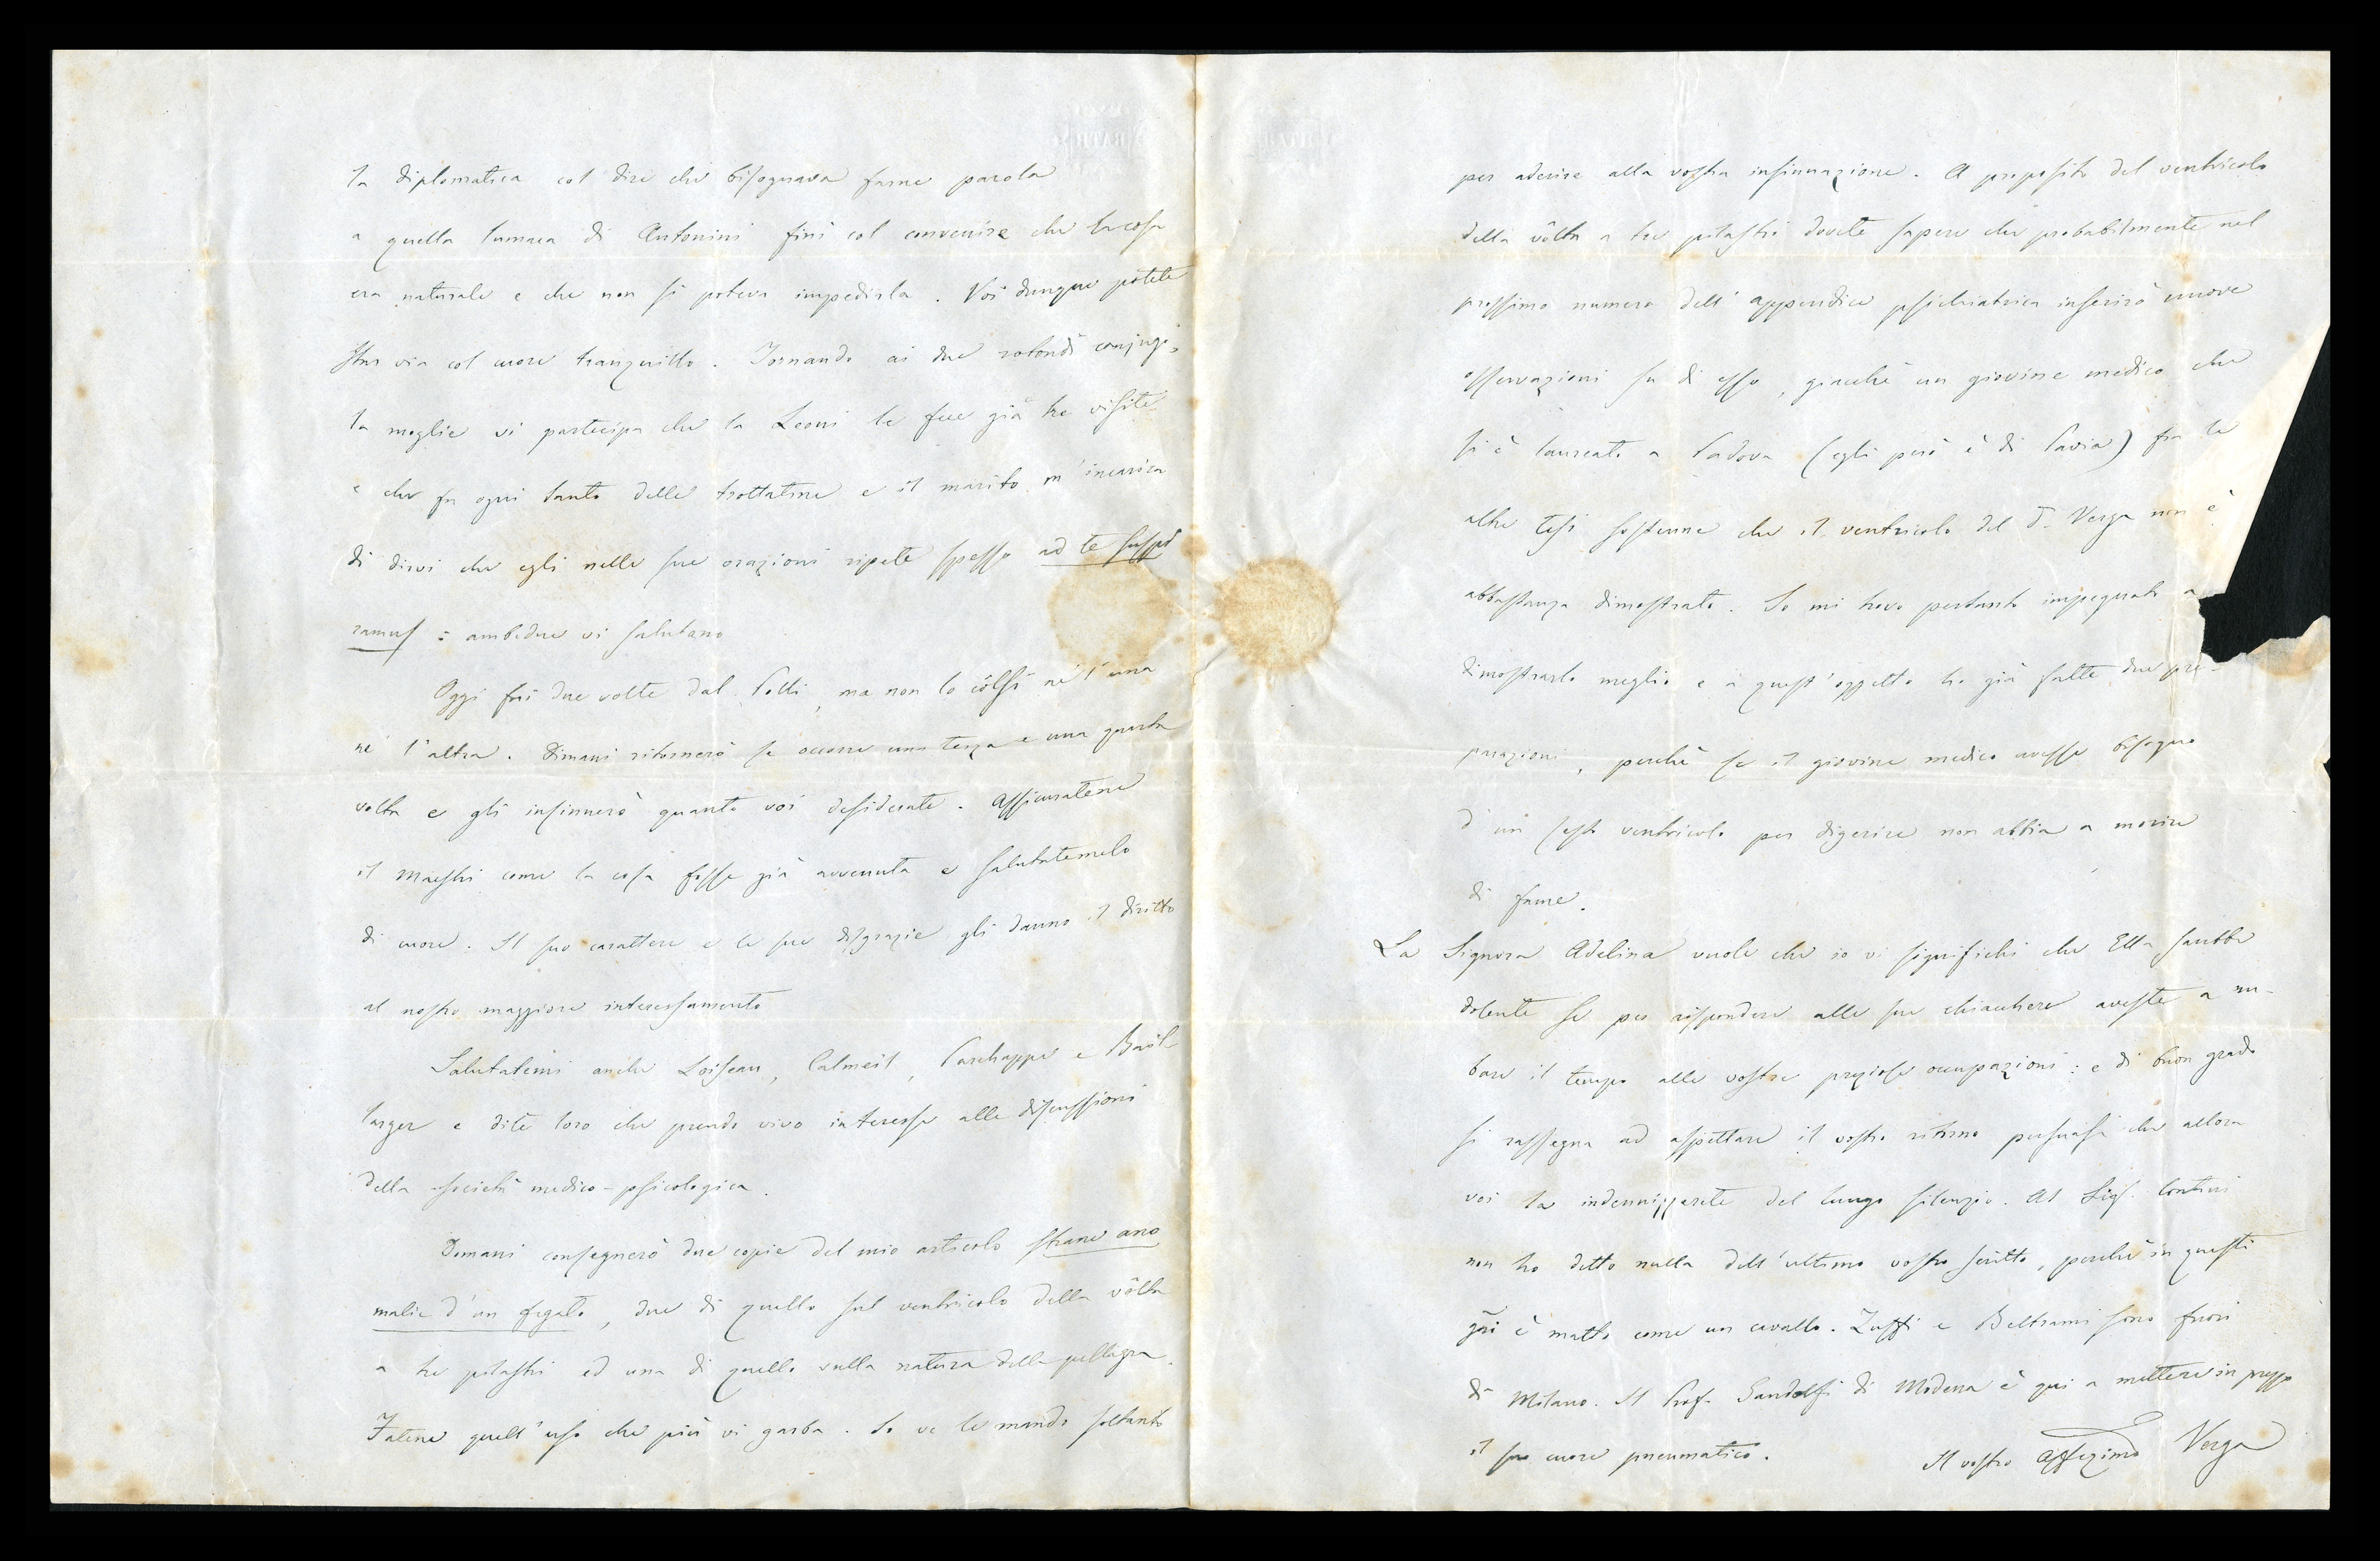 la diplomatica col dire che bisognava farne parola
a quella lumaca di Antonini finì col convenire che la cosa
era naturale e che non si poteva impedirla. Voi dunque potete
star via col cuore tranquillo. Tornando ai due rotondi conjugi,
la moglie vi partecipa che la Leoni le fece già tre visite
e che fa ogni tanto delle trottatine e il marito m'incarica
di dirvi che egli nelle sue orazioni ripete spesso ad te suspi
ramus: ambedue vi salutano
Oggi fui due volte dal Polli, ma non lo côlsi nè l'una
nè l'altra. Dimani ritornerò se occorre una terza e una quarta
volta e gli insinuerò quanto voi desiderate. Assicuratene
il Maestri come la cosa fosse già avvenuta e salutatemelo
di cuore. Il suo carattere e le sue disgrazie gli danno il diritto
al nostro maggiore interessamento
Salutatemi anche Loiseau, Calmeil, Parchappe e Bail
larger e dite loro che prendo vivo interesse alle discussioni
della società medico-psicologica.
Domani consegnerò due copie del mio articolo strane ano
malie d'un fegato, due di quello sul ventricolo della vôlta
a tre pilastri ed una di quello sulla natura della pellagra.
Fatene quell'uso che più vi garba. Io ve le mando soltanto
per aderire alla vostra insinuazione. A proposito del ventricolo
della vôlta a tre pilastri dovete sapere che probabilmente nel
prossimo numero dell'appendice psichiatrica inserirò nuove
osservazioni su di esso, giacchè un giovine medico che
si è laureato a Padova (egli però è di Pavia) fra le
altre tesi sostenne che il ventricolo del D. Verga non è
abbastanza dimostrato. Io mi trovo pertanto impegnato a
dimostrarlo meglio e a quest'oggetto ho già fatte due pre-
parazioni, perchè se il giovine medico avesse bisogno
d'un sesto ventricolo per digerire non abbia a morire
di fame.
La Signora Adelina vuole che io vi significhi che Ella sarebbe
dolente se per rispondere alle sue chiacchere aveste a ru-
bare il tempo alle vostre preziose occupazioni: e di buon grado
si rassegna ad aspettare il vostro ritorno persuasa che allora
voi la indennizzerete del lungo silenzio. Al Sig. Contini
non ho detto nulla dell'ultimo vostro scritto, perchè in questi
gni è matto come un cavallo. Zuffi e Beltrami sono fuori
di Milano. Il Prof. Gandolfi di Modena è qui a mettere in prezzo
il suo cuore pneumatico.
Il vostro affezimo Verga